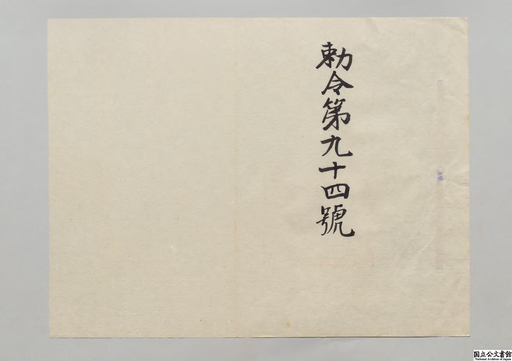 勅令第九十四號
国立公文書館
National Archives of Japan